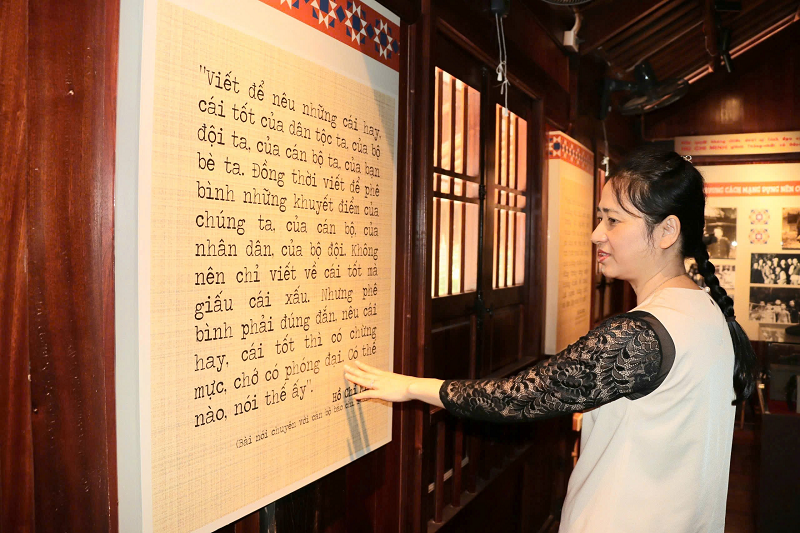 "Viết để nêu những cái hay,
cái tốt của dân tộc ta, của bộ
đội ta, của cán bộ ta, của bạn
bè ta. Đồng thời viết để phê
bình những khuyết điểm của
chúng ta, của cán bộ, của
nhân dân, của bộ đội. Không
nên chỉ viết về cái tốt mà
giấu cái xấu. Nhưng phê
bình phải đúng đắn, nêu cái
hay, cái tốt thì có chừng
mực, chớ có phóng đại. Có thế
nào, nói thế ấy".
Hồ Chí
(Bài nói chuyện với cán bộ báo chí
ƯƠNG CÁCH MẠNG DỰNG NÊN C